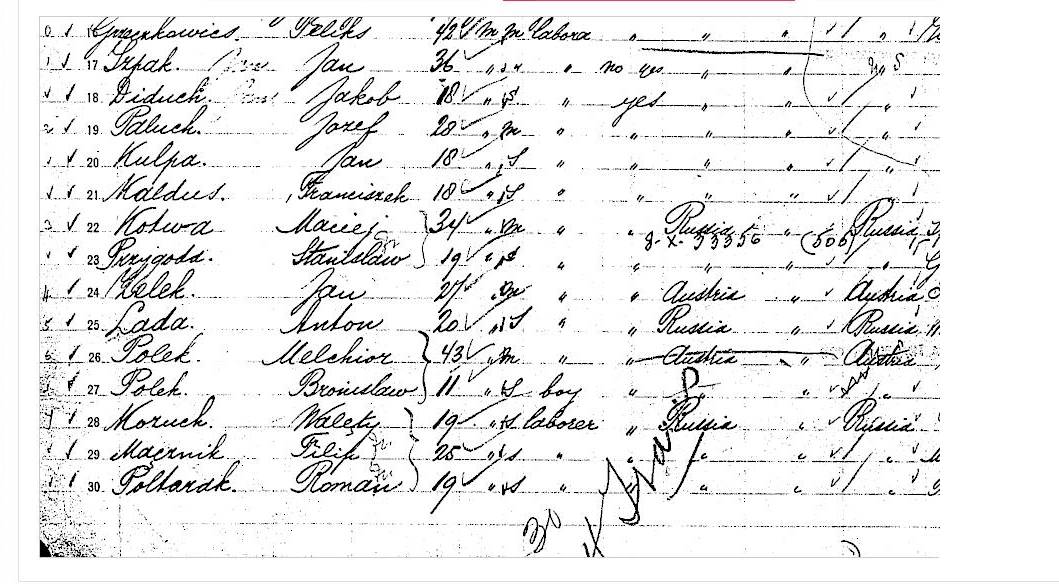 Feliks 42 m m labora " " "
17 Szpak. Jan 36 " " " no yes " "
18 Diduch. Jakob 18 " S " yes " "
19 Paluch. Jozef 28 " m " " " "
20 Kulpa. Jan 18 " S " " " "
21 Maldus. Franciszek 18 " S " " " "
22 Kotwa Maciej 34 " m " " Russia " Russia
8-X-33356 (506)
23 Przygoda. Stanislaw 19 " S " " " " "
24 Zelek. Jan 27 " m " " Austria " Austria
25 Lada. Anton 20 " S " " Russia " Russia
26 Polek. Melchior 43 " m " " Austria " Austria
27 Polek. Bronislaw 11 " S boy " " " "
28 Moruch. Walety 19 " S laborer " Russia " Russia
29 Macznik Filip 25 " S " " " " "
30. Poltarak. Roman 19 " S " " " " "
30